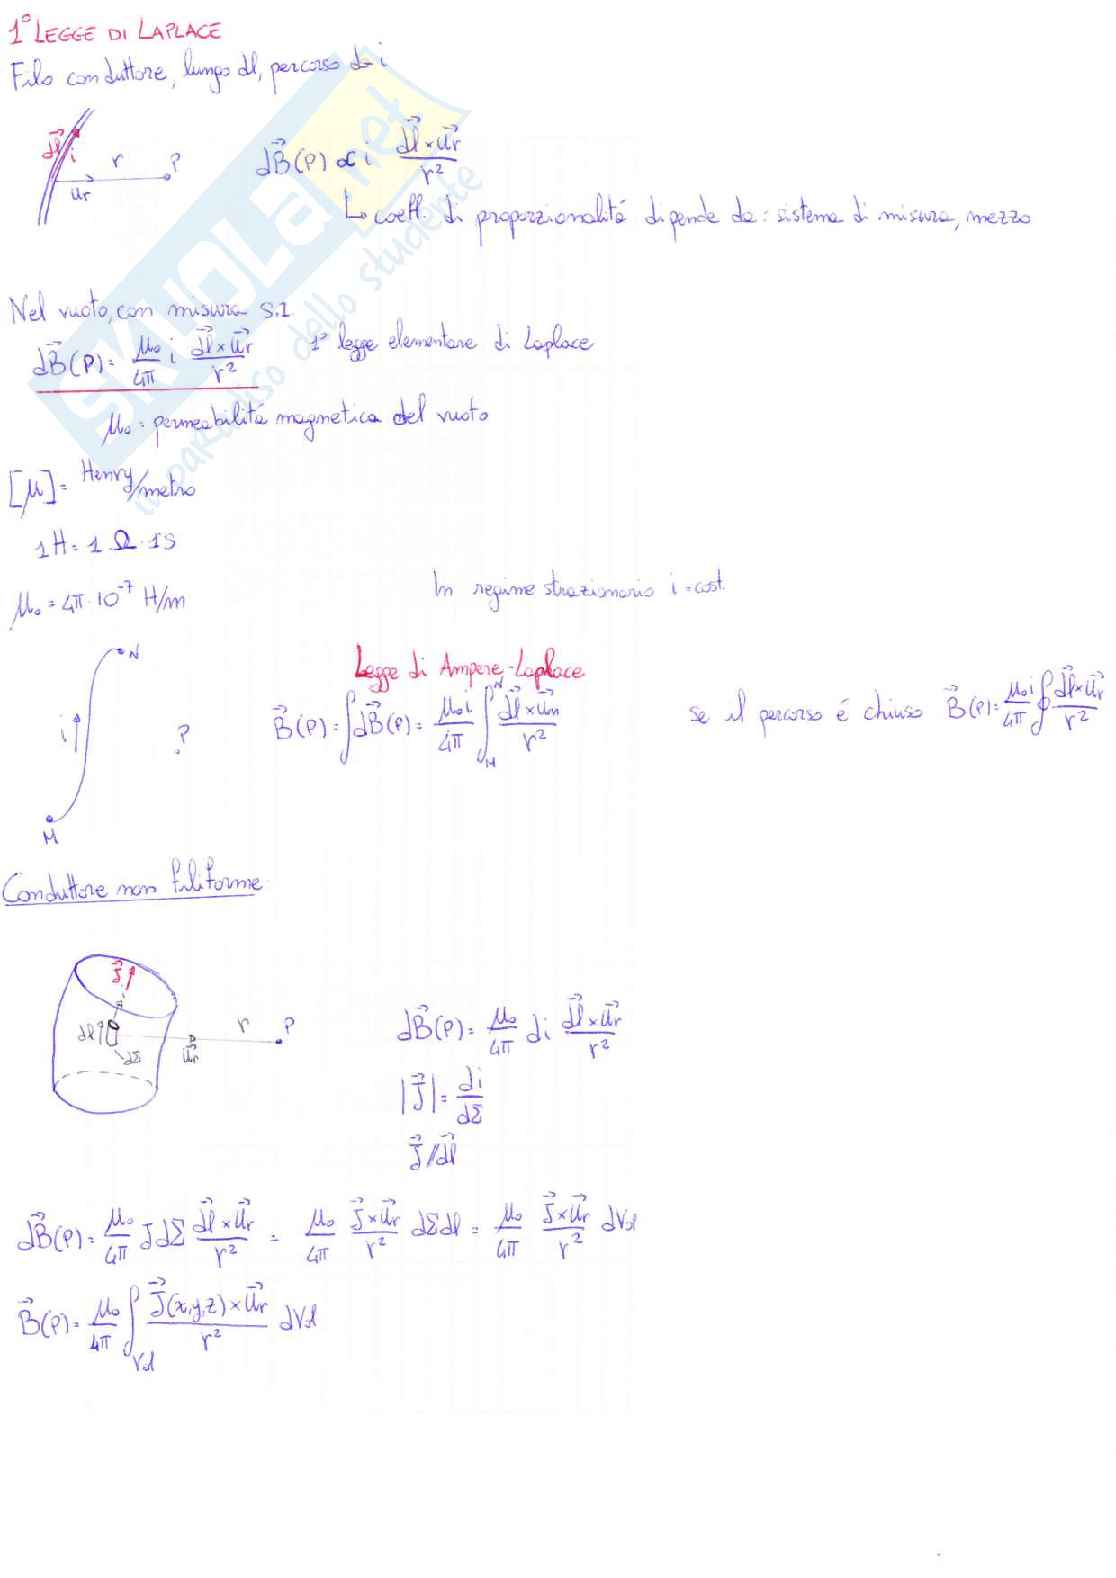 1° LEGGE DI LAPLACE
Filo conduttore, lungo dl, percorso da i
dl⃗ i r P
u⃗r
dB⃗(P) ∝ i dl⃗ × u⃗r / r²
↳ coeff. di proporzionalitá dipende da: sistema di misura, mezzo
SKUOLA.net
il paradiso dello studente
Nel vuoto, con misura S.I.
dB⃗(P) = μ₀/4π i dl⃗ × u⃗r / r² 1° legge elementare di Laplace
μ₀ = permeabilitá magnetica del vuoto
[μ] = Henry/metro
1H = 1 Ω · 1s
μ₀ = 4π · 10⁻⁷ H/m
In regime strazionario i = cost.
N
i P
M
Legge di Ampere-Laplace
B⃗(P) = ∫ dB⃗(P) = μ₀i/4π ∫_M^N dl⃗ × u⃗n / r²
se il percorso é chiuso B⃗(P) = μ₀i/4π ∮ dl⃗ × u⃗r / r²
Conduttore non filiforme
J⃗
dl dΣ r P
u⃗r
dB⃗(P) = μ₀/4π di dl⃗ × u⃗r / r²
|J⃗| = di/dΣ
J⃗ // dl⃗
dB⃗(P) = μ₀/4π J dΣ dl⃗ × u⃗r / r² = μ₀/4π J⃗ × u⃗r / r² dΣ dl = μ₀/4π J⃗ × u⃗r / r² dVol
B⃗(P) = μ₀/4π ∫_Vol J⃗(x,y,z) × u⃗r / r² dVol